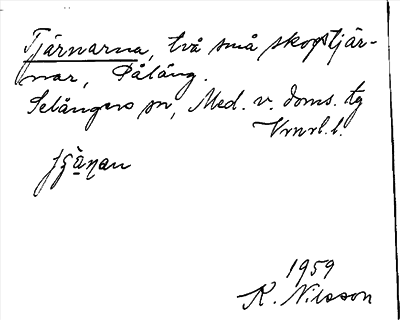 Tjärnarna, två små skogstjär-
nar, Påläng.
Selångers sn, Med. v. doms. tg
Vrnrl. l.
1959
K. Nilsson